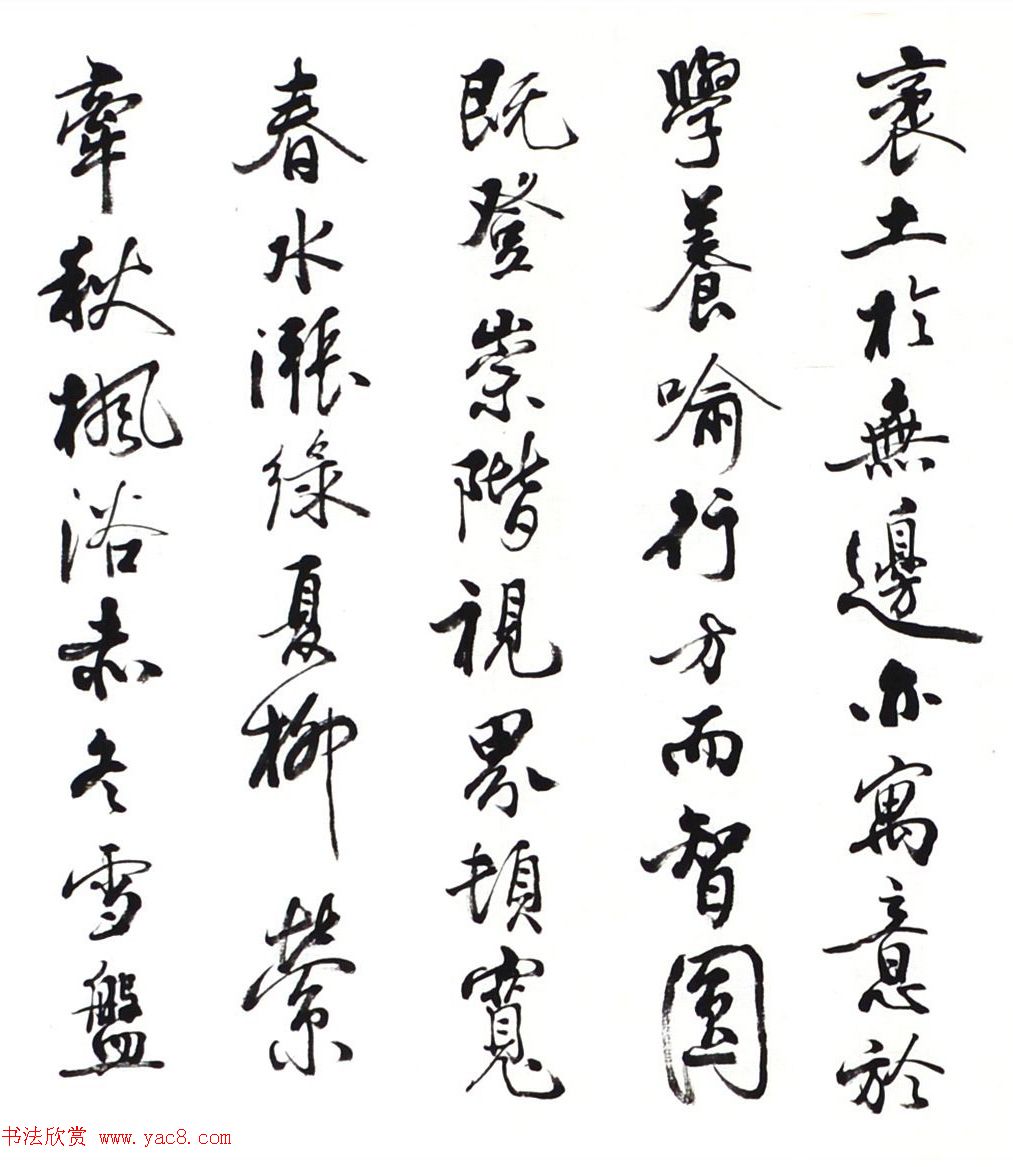 裹土於無邊亦寓意於
學養喻行方而智圓
既登崇階視界頓寬
春水漲綠夏柳縈
牽秋楓浴赤冬雪盤
书法欣赏 www.yac8.com